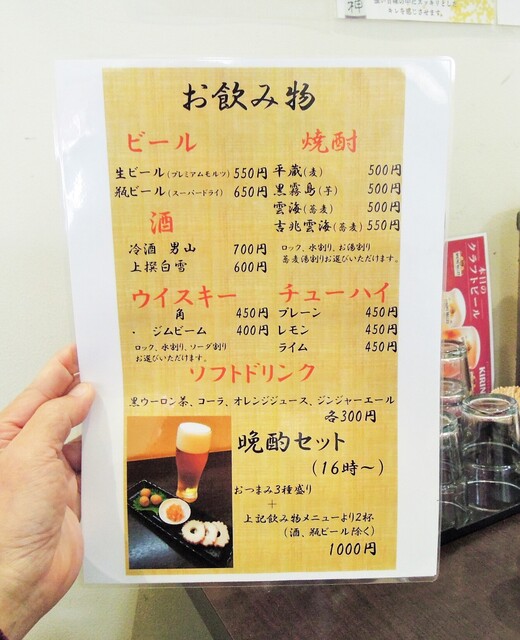 お飲み物
ビール
生ビール(プレミアムモルツ) 550円
瓶ビール(スーパードライ) 650円
酒
冷酒 男山 700円
上撰白雪 600円
焼酎
平蔵(麦) 500円
黒霧島(芋) 500円
雲海(蕎麦) 500円
吉兆雲海(蕎麦) 550円
ロック、水割り、お湯割り
蕎麦湯割りお選びいただけます。
ウイスキー
角 450円
・ ジムビーム 400円
ロック、水割り、ソーダ割り
お選びいただけます。
チューハイ
プレーン 450円
レモン 450円
ライム 450円
ソフトドリンク
黒ウーロン茶、コーラ、オレンジジュース、ジンジャーエール
各300円
晩酌セット
(16時～)
おつまみ3種盛り
+
上記飲み物メニューより2杯
(酒、瓶ビール除く)
1000円
本日の
クラフトビール
KIRIN